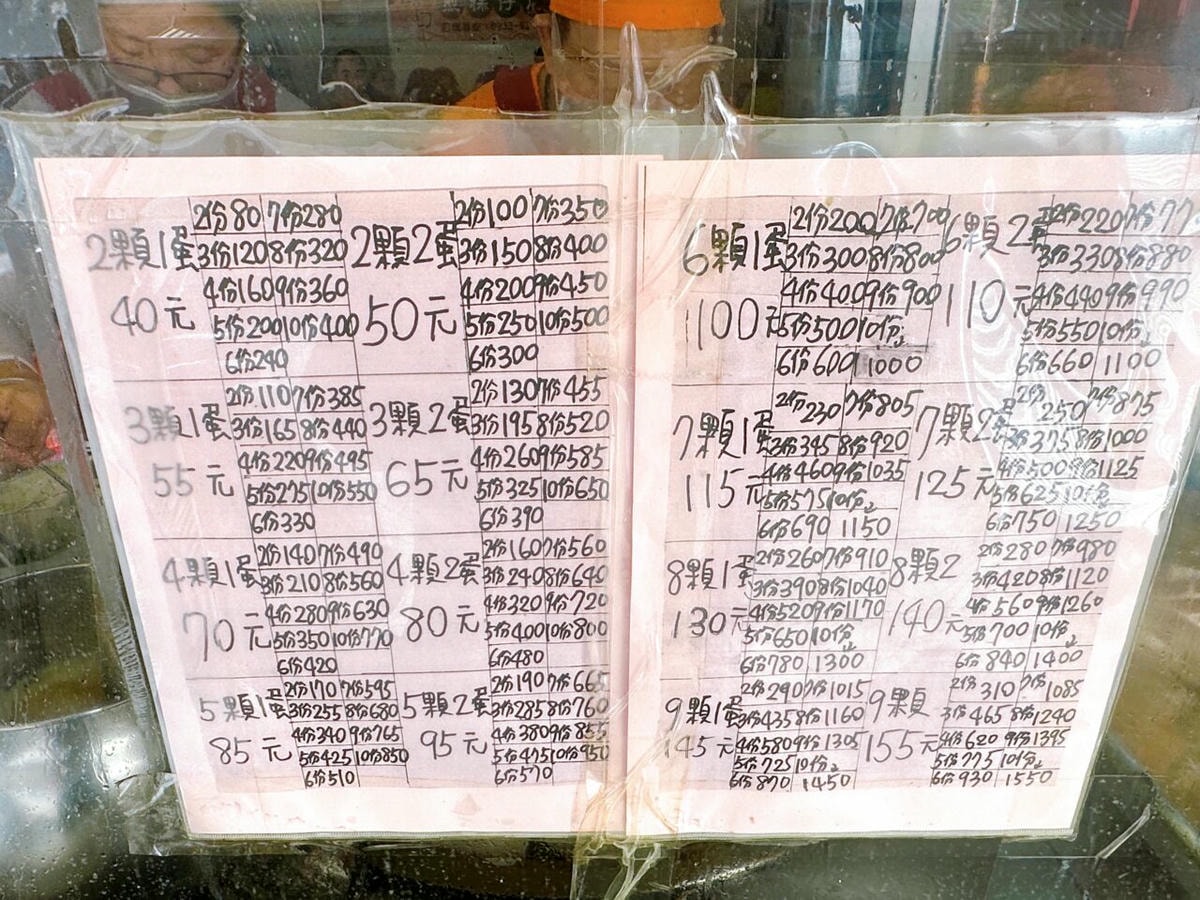 2顆1蛋
40元
2份80 7份280
3份120 8份320
4份160 9份360
5份200 10份400
6份240
2顆2蛋
50元
2份100 7份350
3份150 8份400
4份200 9份450
5份250 10份500
6份300
3顆1蛋
55元
2份110 7份385
3份165 8份440
4份220 9份495
5份275 10份550
6份330
3顆2蛋
65元
2份130 7份455
3份195 8份520
4份260 9份585
5份325 10份650
6份390
4顆1蛋
70元
2份140 7份490
3份210 8份560
4份280 9份630
5份350 10份770
6份420
4顆2蛋
80元
2份160 7份560
3份240 8份640
4份320 9份720
5份400 10份800
6份480
5顆1蛋
85元
2份170 7份595
3份255 8份680
4份340 9份765
5份425 10份850
6份510
5顆2蛋
95元
2份190 7份665
3份285 8份760
4份380 9份855
5份475 10份950
6份570
6顆1蛋
100元
2份200 7份700
3份300 8份800
4份400 9份900
5份500 10份
6份600 1000
6顆2蛋
110元
2份220 7份77
3份330 8份880
4份440 9份990
5份550 10份
6份660 1100
7顆1蛋
115元
2份230 7份805
3份345 8份920
4份460 9份1035
5份575 10份
6份690 1150
7顆2蛋
125元
2份250 7份875
3份375 8份1000
4份500 9份1125
5份625 10份
6份750 1250
8顆1蛋
130元
2份260 7份910
3份390 8份1040
4份520 9份1170
5份650 10份
6份780 1300
8顆2
140元
2份280 7份980
3份420 8份1120
4份560 9份1260
5份700 10份
6份840 1400
9顆1蛋
145元
2份290 7份1015
3份435 8份1160
4份580 9份1305
5份725 10份
6份870 1450
9顆
155元
2份310 7份1085
3份465 8份1240
4份620 9份1395
5份775 10份
6份930 1550